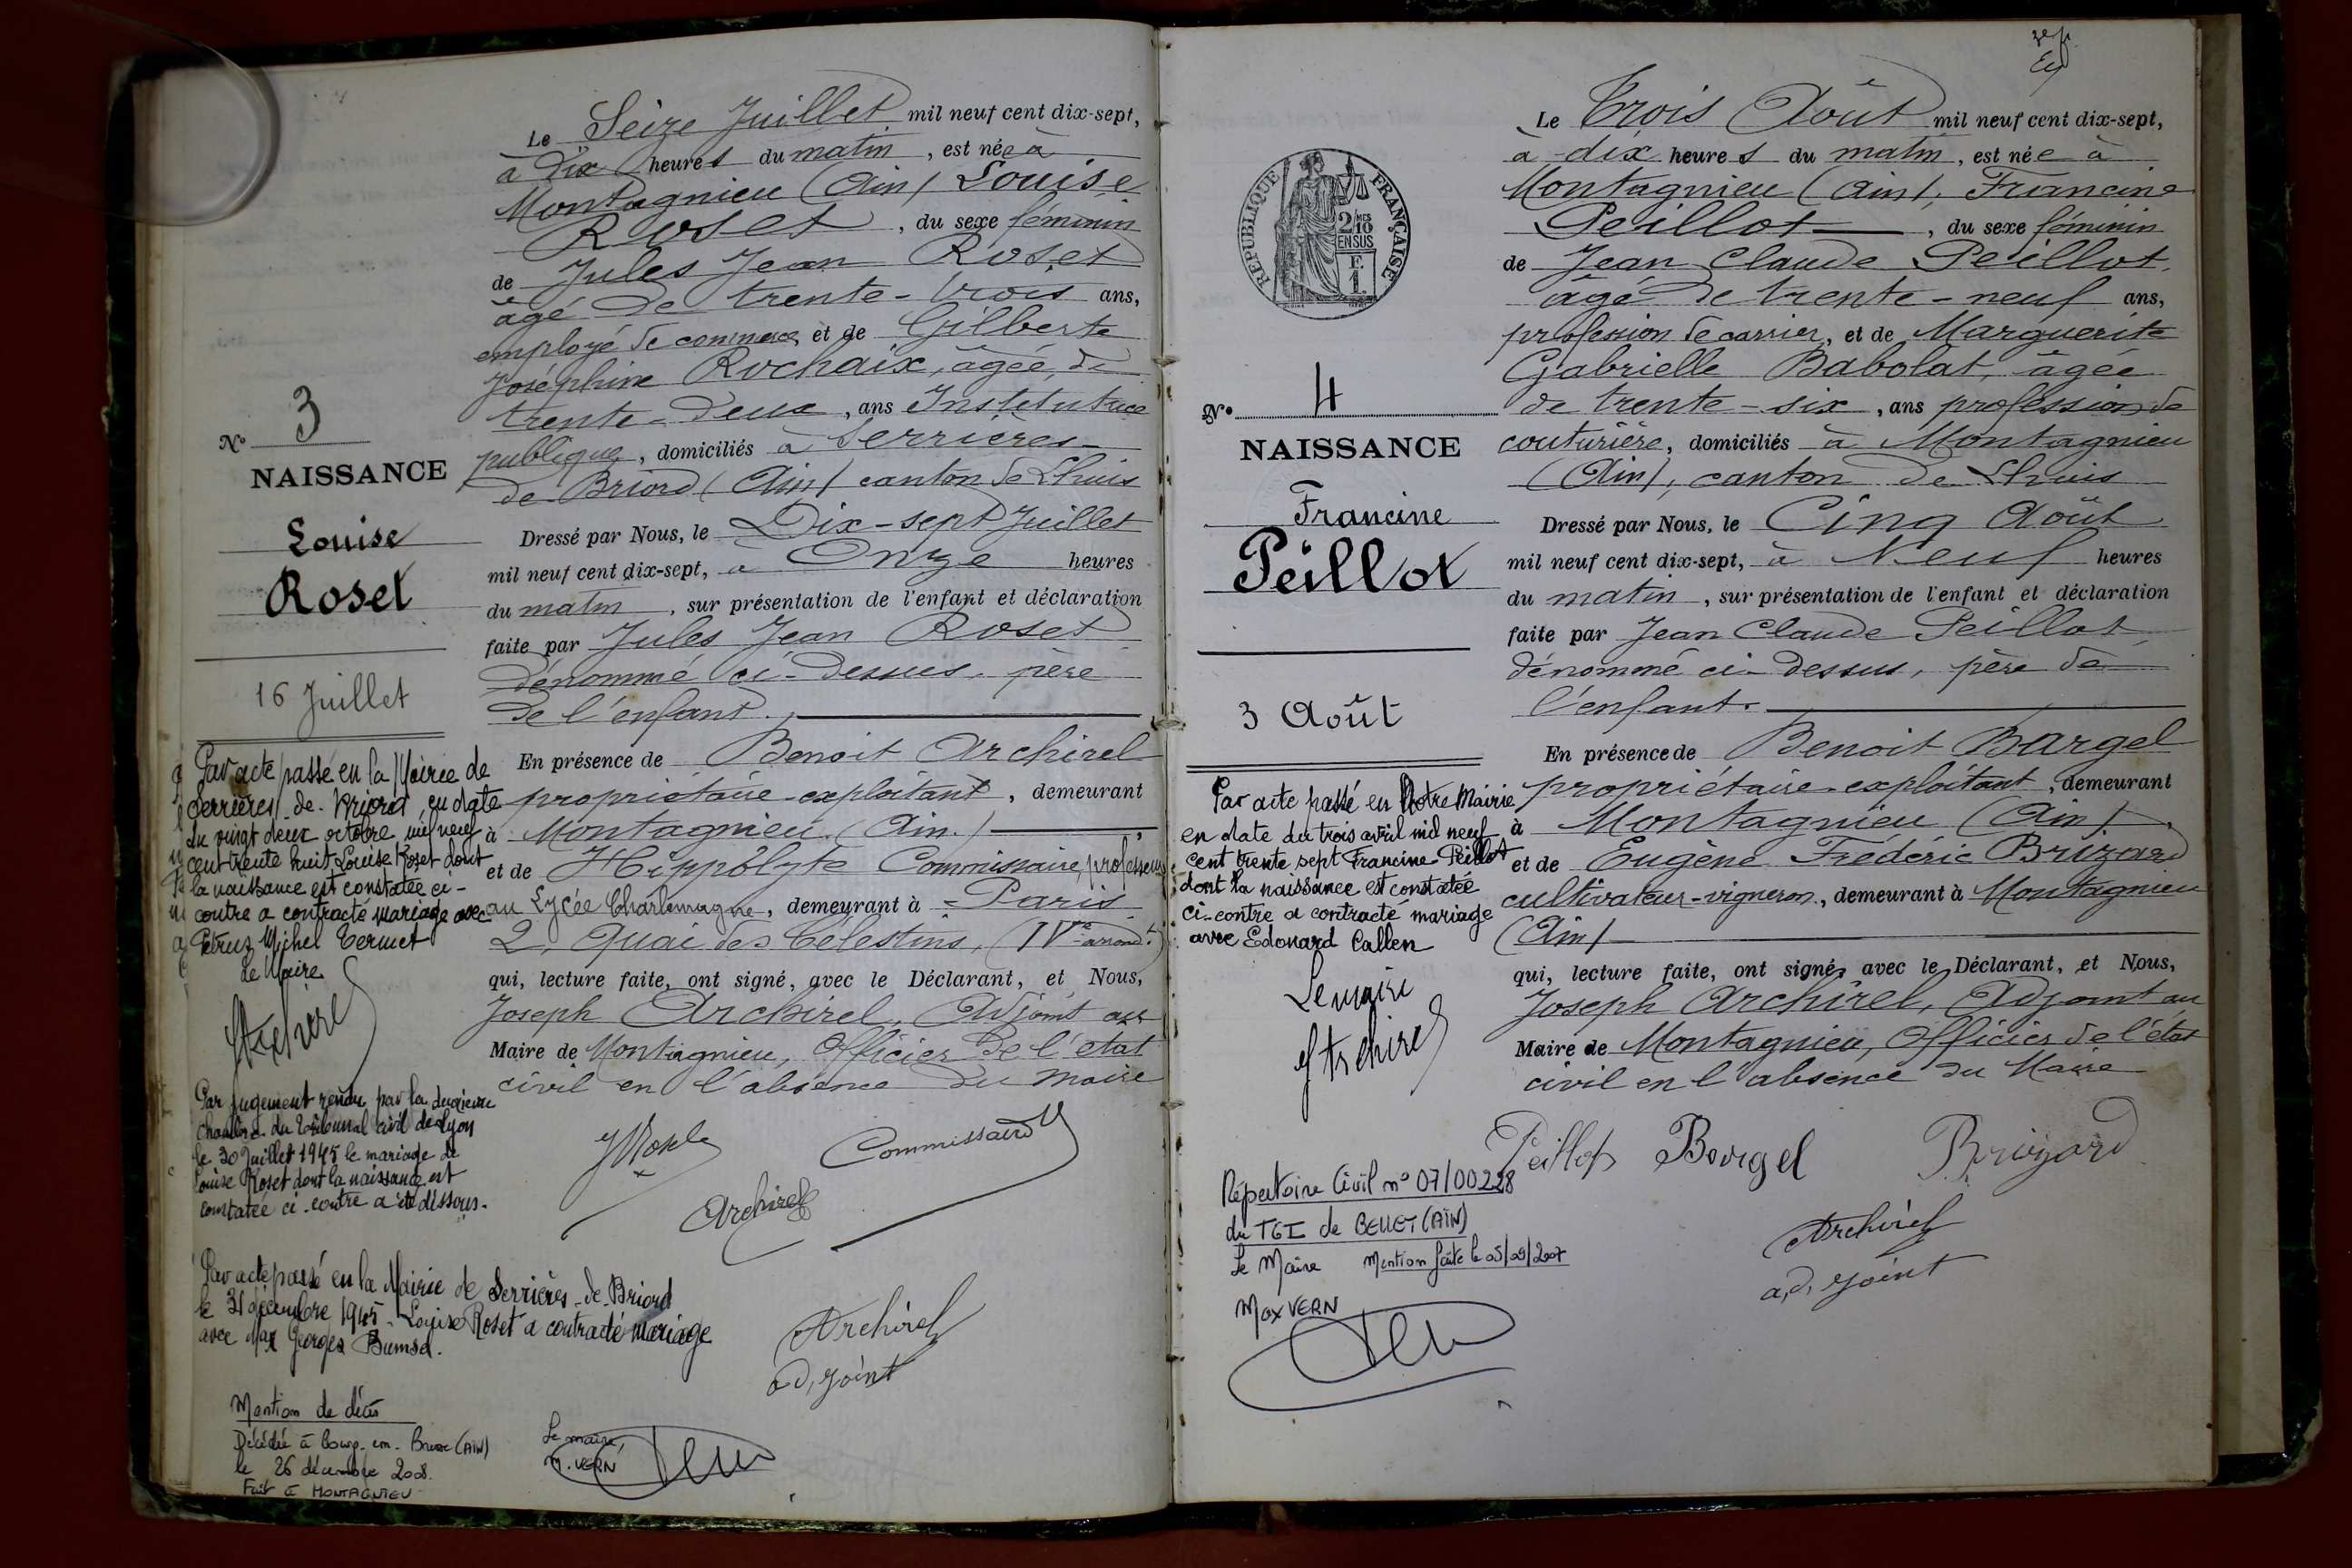 N° 3
NAISSANCE
Louise
Roset
16 Juillet
Par acte passé en la Mairie de
Serrières-de-Briord, en date
du vingt deux octobre mil neuf
cent trente huit Louise Roset dont
la naissance est constatée ci-
contre a contracté mariage avec
Pétrus Michel Termet
Le Maire
Par jugement rendu par la deuxième
chambre du Tribunal civil de Lyon
le 30 Juillet 1945 le mariage de
Louise Roset dont la naissance est
constatée ci-contre a été dissous.
Par acte passé en la Mairie de Serrières-de-Briord
le 31 décembre 1945 - Louise Roset a contracté mariage
avec Max Georges Bumsel.
Mention de décès
Décédée à Bourg-en-Bresse (AIN)
le 26 décembre 2008.
Fait à MONTAGNIEU
Le maire,
M. VERN
Le Seize Juillet mil neuf cent dix-sept,
à Dix heures du matin, est née à
Montagnieu (Ain) Louise
Roset, du sexe féminin
de Jules Jean Roset
âgé de trente-trois ans,
employé de commerce, et de Gilberte
Joséphine Rochaix, âgée de
trente-deux, ans Institutrice
publique, domiciliés à Serrières-
de-Briord (Ain) canton de Lhuis
Dressé par Nous, le Dix-sept Juillet
mil neuf cent dix-sept, à Onze heures
du matin, sur présentation de l'enfant et déclaration
faite par Jules Jean Roset
dénommé ci-dessus, père
de l'enfant.
En présence de Benoit Archirel
propriétaire-exploitant, demeurant
à Montagnieu (Ain.),
et de Hippolyte Commissaire, professeur
au Lycée Charlemagne, demeurant à Paris
2, Quai des Célestins, (IVe arrondt)
qui, lecture faite, ont signé, avec le Déclarant, et Nous,
Joseph Archirel, Adjoint au
Maire de Montagnieu, Officier de l'état
civil en l'absence du maire
Commissaire
Archirel
Archirel
adjoint
RÉPUBLIQUE FRANÇAISE
2/10MES
EN SUS
F.
1.
N° 4
NAISSANCE
Francine
Peillot
3 Août
Par acte passé en Notre Mairie
en date du trois avril mil neuf
cent trente sept Francine Peillot
dont la naissance est constatée
ci-contre a contracté mariage
avec Edouard Callen
Le maire
Répertoire Civil n° 07/00228
du TGI de BELLEY (AIN)
Le Maire Mention faite le 05/09/2007
Max VERN
Le Trois Août mil neuf cent dix-sept,
à dix heures du matin, est née à
Montagnieu (Ain), Francine
Peillot, du sexe féminin
de Jean Claude Peillot,
âgé de trente-neuf ans,
profession de carrier, et de Marguerite
Gabrielle Babolat, âgée
de trente-six, ans profession de
couturière, domiciliés à Montagnieu
(Ain), canton de Lhuis
Dressé par Nous, le Cinq Août
mil neuf cent dix-sept, à Neuf heures
du matin, sur présentation de l'enfant et déclaration
faite par Jean Claude Peillot
dénommé ci-dessus, père de
l'enfant.
En présence de Benoit Bargel
propriétaire-exploitant, demeurant
à Montagnieu (Ain),
et de Eugène Frédéric Brizard
cultivateur-vigneron, demeurant à Montagnieu
(Ain)
qui, lecture faite, ont signé, avec le Déclarant, et Nous,
Joseph Archirel, Adjoint au
Maire de Montagnieu, Officier de l'état
civil en l'absence du Maire
Peillot Bargel Brizard
Archirel
adjoint